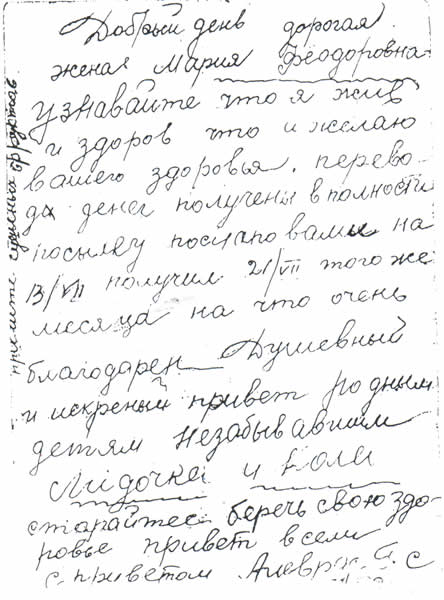 Добрый день дорогая
жена Мария Феодоровна
узнавайте что я жив
и здоров что и желаю
вашего здоровья. перево-
да денег получены вполности
посылку послано вами на
13/VII получил 21/VII того же
месяца на что очень
благодарен Душевный
и искреный привет родным
детям Незабывавшим
Лидочка и Коли
старайтес беречь свою здо-
ровье привет всем
с приветом
пришлите фруктов